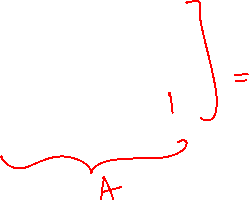 1 ] =
A